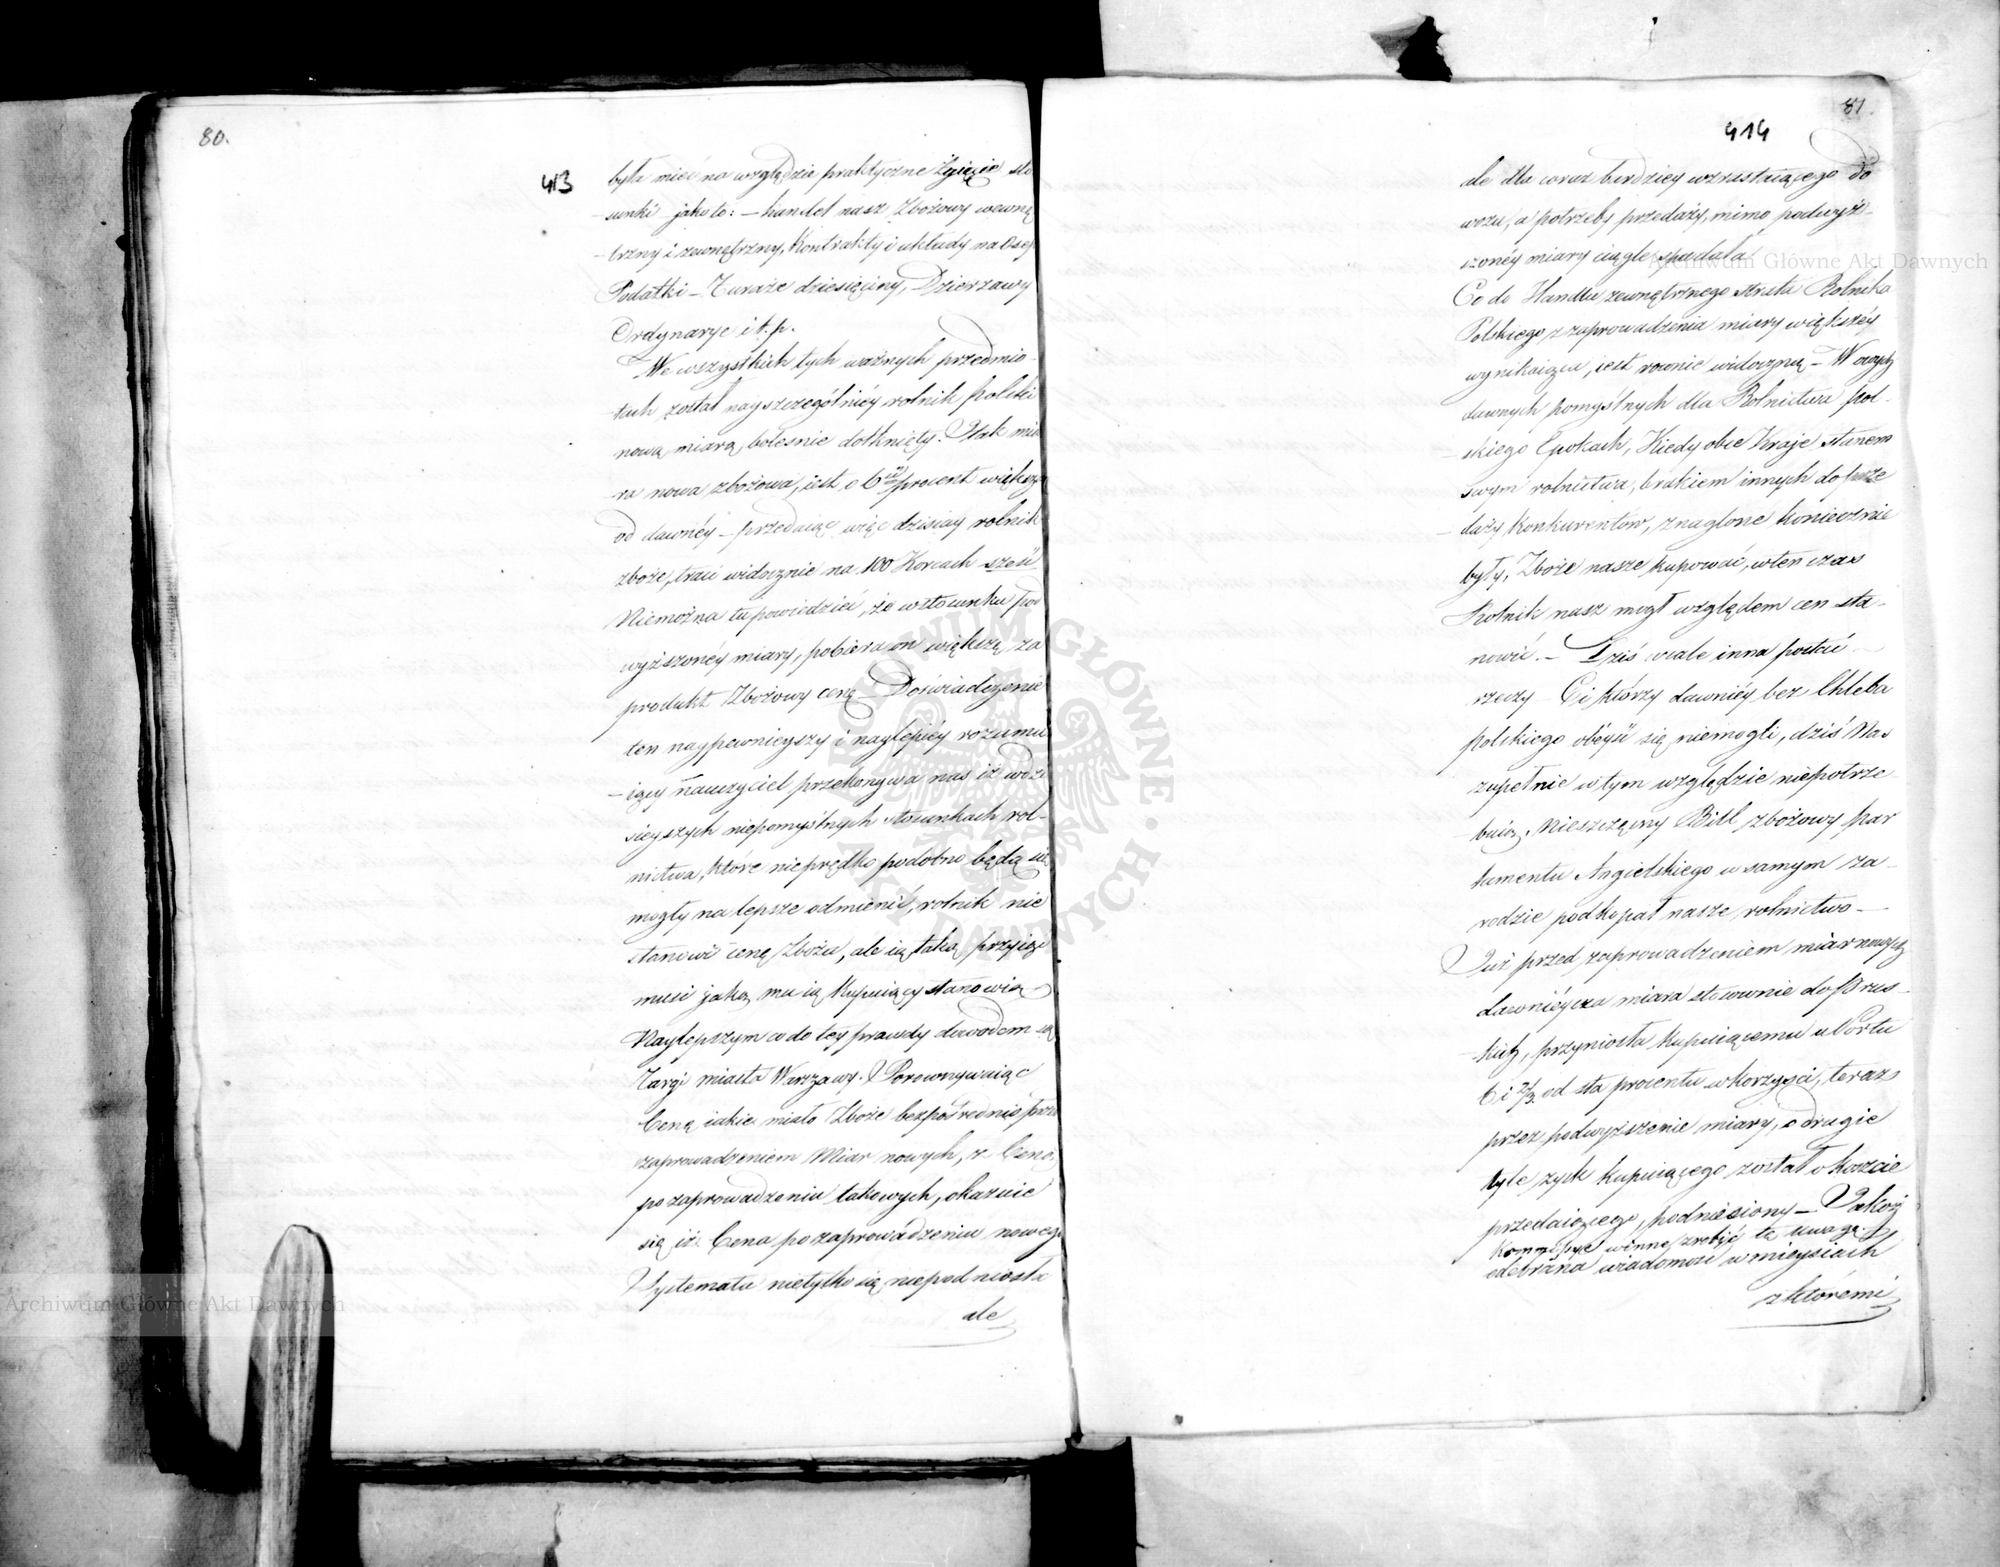 80.
413
była mieć na względzie praktyczne Życie sto
-sunki jako to: – handel nasz Zbożowy wewnę
-trzny i zewnętrzny, Kontrakty i układy na Osep
Podatki – dziesięciny, Dzierzawy
Ordynarye i t. p.
We wszystkich tych ważnych przedmio-
tach został nayszczególniéy rolnik Polski
nową miarą boleśnie dotknięty. Jak mia
-ra nowa zbożowa, iest o 6 procent większa
od dawnéy – przedaiąc więc dzisiay rolnik
zboże, traci widocznie na 100 Korcach sześć
Niemożna tu powiedzieć, że w stosunku pod
wyższonéy miary, pobiera on większą za
produkt Zbożowy cenę – Doświadczenie
ten naypewnieyszy i naylepiéy rozumu
-iący nauczyciel przekonywa nas iż w dzi
sieyszych niepomyślnych stosunkach rol-
nictwa, które nieprędko podobno będą się
mogły na lepsze odmienić, rolnik nie
stanowi cenę Zboża, ale ią taką przyiąć
musi jaką mu ią Kupuiący stanowią
Naylepszym co do tey prawdy dowodem są
Targi miasta Warszawy. Porownywaiąc
Cenę iakie miało Zboże bezpośrednio przed
zaprowadzeniem Miar nowych, z Ceną
po zaprowadzeniu takowych, okazuie
się iż Cena po zaprowadzeniu nowego
Systematu nietylko się niepodniosła
ale
81.
414
ale dla coraz bardziey wzrastaiącego do
wozu, a potrzeby przedaży, mimo podwyż-
szonéy miary ciągle spadała
Co do Handlu zewnętrznego strata Rolnika
Polskiego z zaprowadzenia miary większéy
wynikaiąca, iest rownie widoczną – W
dawnych pomyślnych dla Rolnictwa Pol-
-skiego Epokach, Kiedy obce Kraje stanem
swym rolnictwa, brakiem innych do prze
-daży Konkurentów, znaglone koniecznie
były, Zboże nasze kupować, wtenczas
Rolnik nasz mogł względem cen sta-
nowić. – Dziś wcale inna postać
rzeczy – Ci którzy dawniéy bez Chleba
polskiego obéyść się niemogli, dziś Nas
zupełnie w tym względzie niepotrze-
buią. Nieszczęsny Bill zbożowy Par
lamentu Angielskiego w samym za-
rodzie podkopał nasze rolnictwo –
Już przed zaprowadzeniem miar nowych
dawniéysza miara stosownie do Prus-
-kiéy, przyniosła kupuiącemu u Portu
6 i 2/3. od sta procentu w korzyści, teraz
przez podwyższenie miary, o drugie
tyle zysk kupuiącego został o koszcie
przedaiącego, podniesiony – Jakoż
Kommissye winne zrobić tę uwagę.
odebrana wiadomość w mieyscach
z któremi
Archiwum Główne Akt Dawnych
Archiwum Główne Akt Dawnych
ARCHIWUM GŁÓWNE AKT DAWNYCH